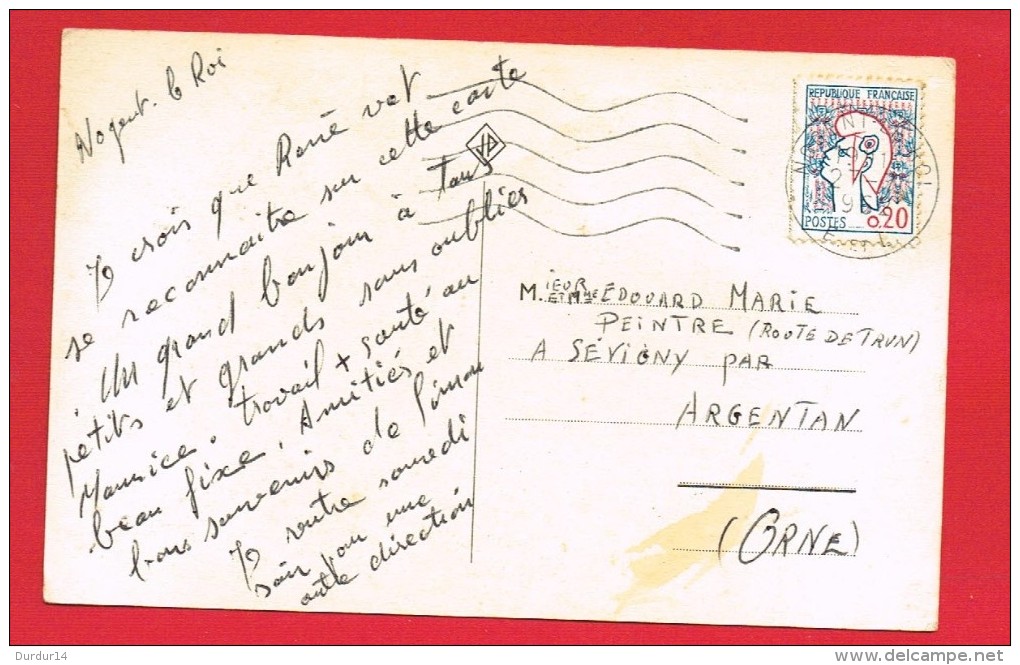 Nogent-le Roi
Je crois que René vat
se reconnaitre sur cette carte
Un grand bonjour à tous
petits et grands sans oublier
Maurice. travail + santé au
beau fixe. Amitiés et
bons souvenirs de Simon
Je rentre samedi
soir pour une
autre direction
REPUBLIQUE FRANÇAISE
POSTES 0.20
M.IEUR ET MME EDOUARD MARIE
PEINTRE (ROUTE DE TRUN)
A SÉVIGNY PAR
ARGENTAN
(ORNE)
Durdur14